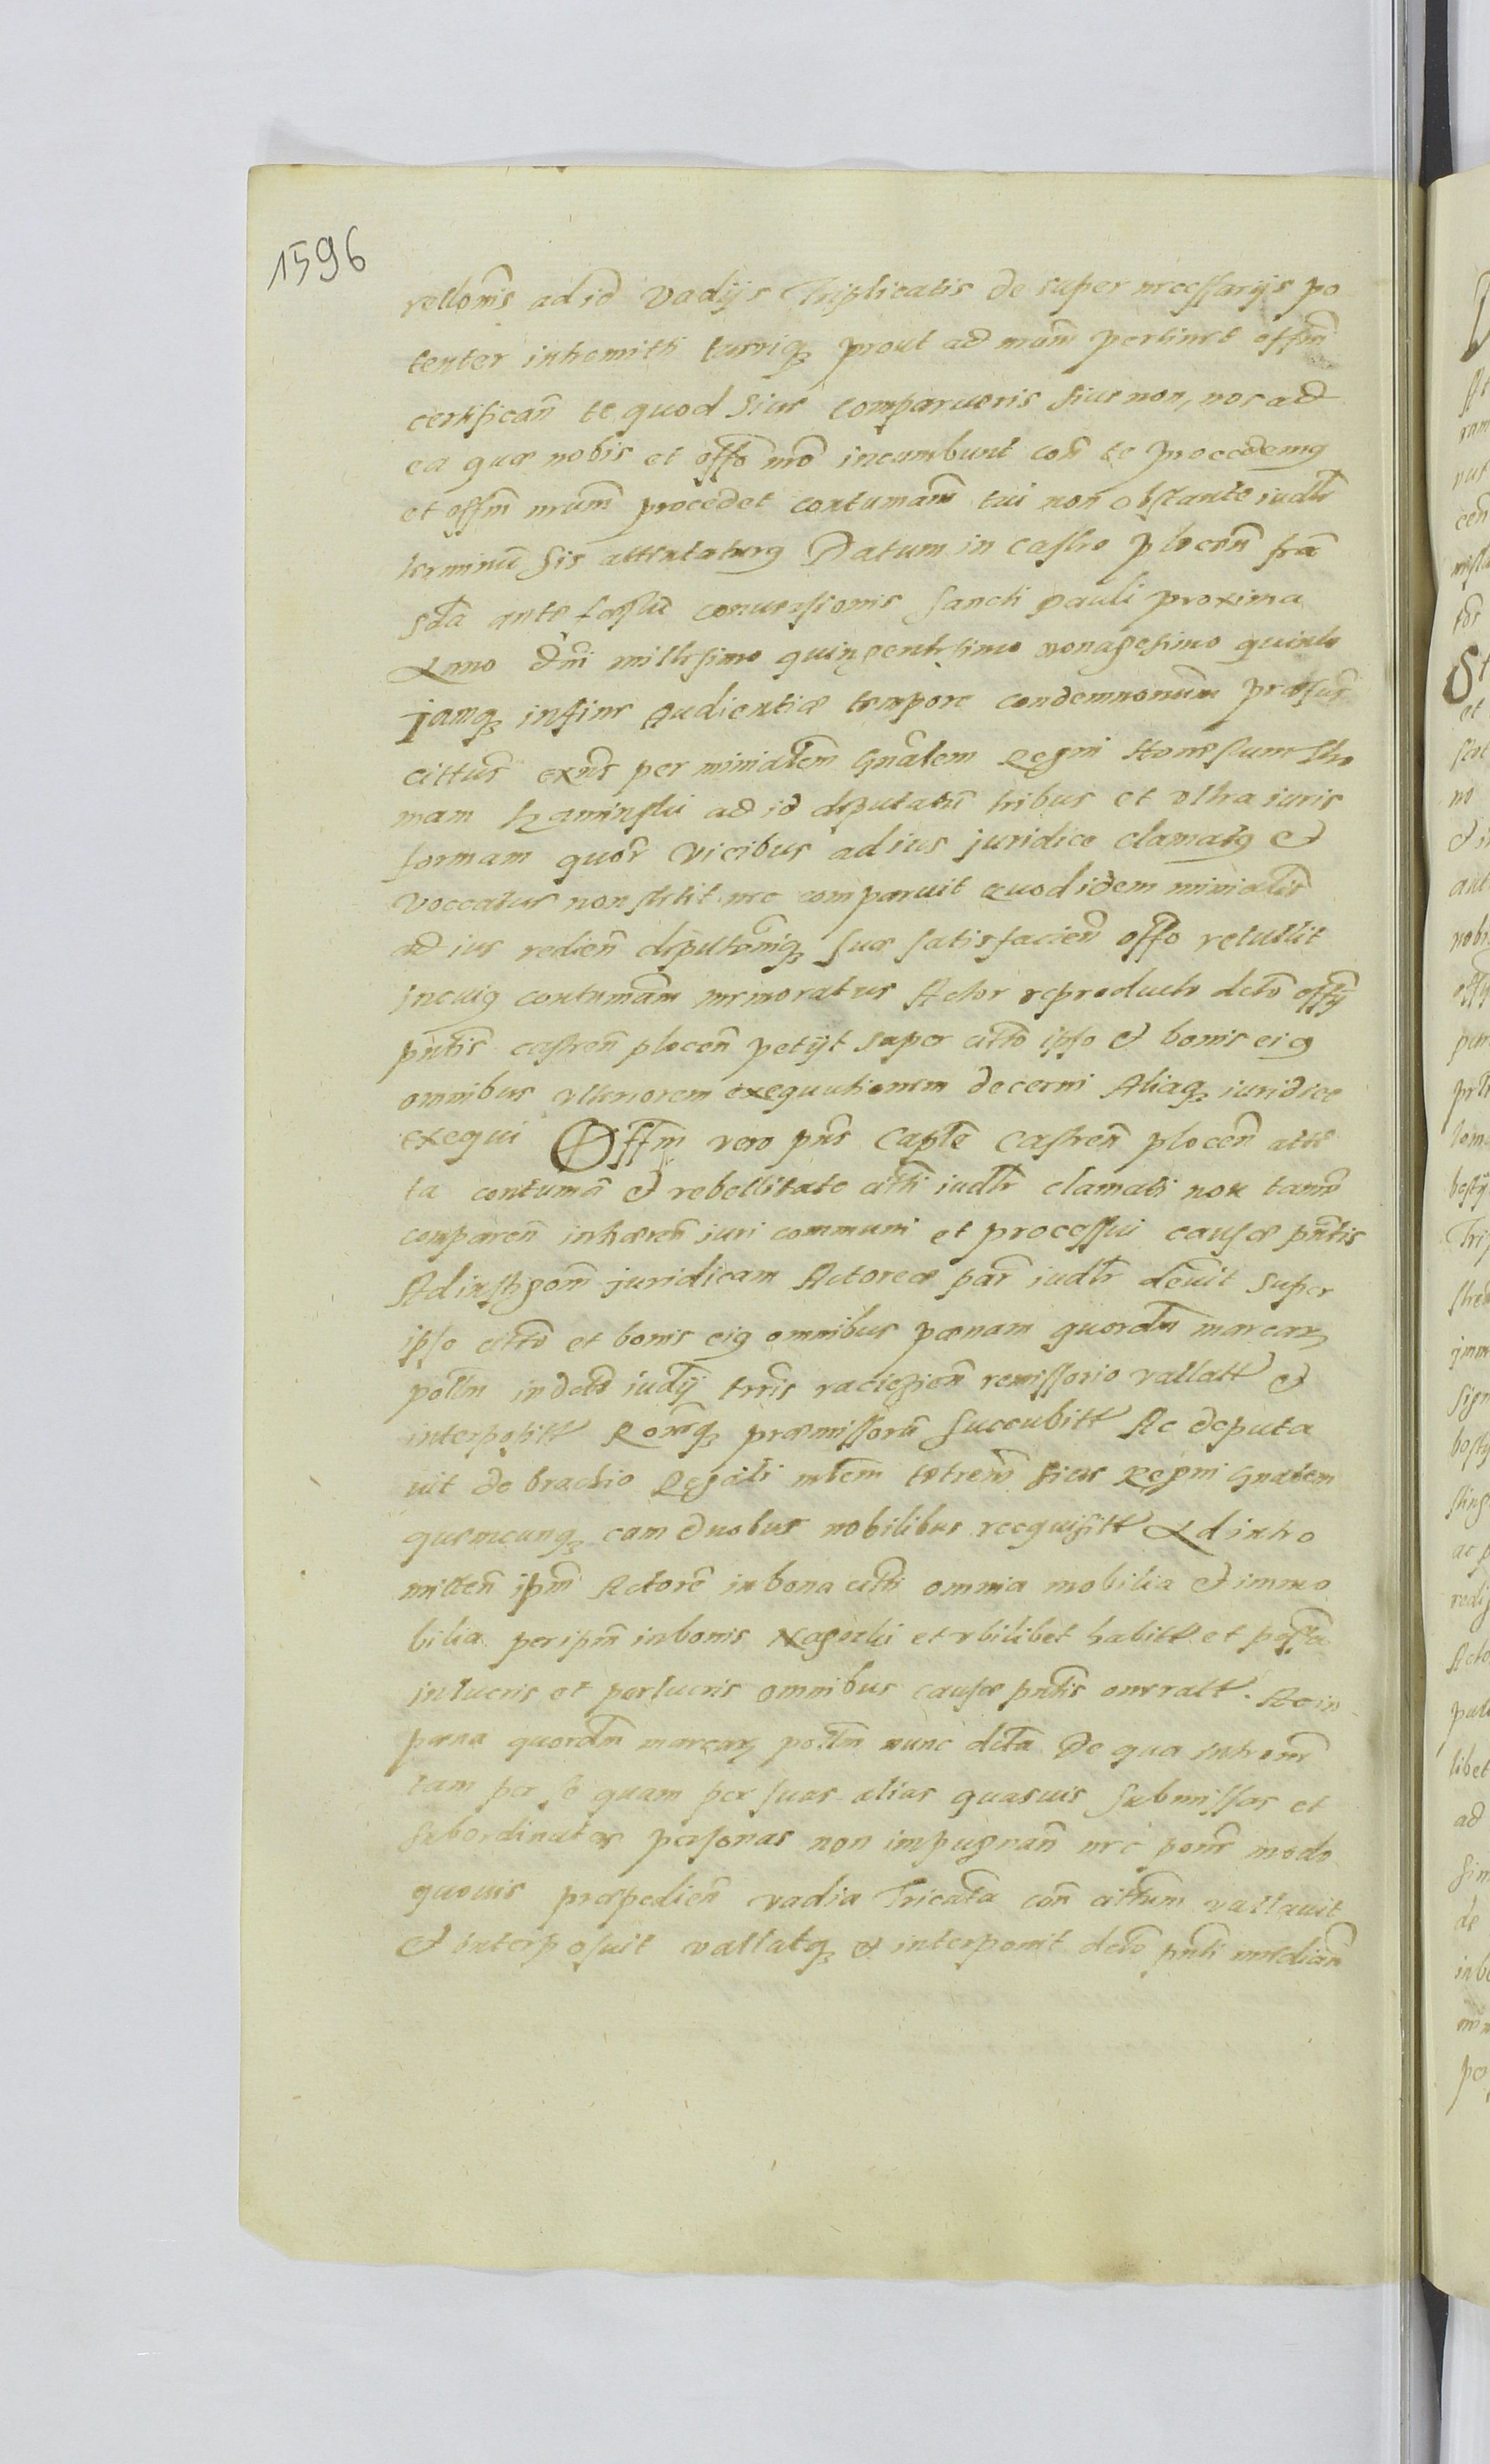 1596
rellonis ad id vadijs Triplicatis de super necessarijs po
tenter inhomitti turniq prout ad nrum pertinet offm
certifican te quod siue comparueris siue non, nos ad
ea quæ nobis et offo nro incumbunt con te procedemus
et offm nrum procedet contumam tui non obstante iudlr
terminu sis attentaturus Datum in Castro plocen fra
sda ante festu conuersionis Sancti Pauli proxima
Anno dni millesimo quingentesimo nonagesimo quinto
jamq in fine Audientiæ tempore condemnonum
cittus exns per minialem gnalem Regni Honestum Tho
mam Kaminski ad id deputatu tribus et vltra iuris
formam quor vicibus ad ius juridice clamatus et
voccatus non stetit nec comparuit quod idem minialis
ad ius redien deputoniq suæ satisfacien offo retullit
In cuius contumam memoratus Actor reproducto dcto offij
pntis castren plocen petijt super citto ipso et bonis eius
omnibus vlteriorem exequutionem decerni Aliaq iuridice
exequi Offm vero pns Captle Castren plocen atte
ta contuma et rebellitate citti iudlr clamati non tamen
comparen inhæren iuri communi et processui causæ pntis
Ad instigom juridicam Actoreæ par iudlr deuit super
ipso citto et bonis eius omnibus pænam quordm marcar
pollm in dcto iudij trris raciazien remissorio vallatt et
interpositt Romq præmissoru succubitt Ac deputa
uit de brachio Regali mlem trtrem siue Regni gnalem
quemcunq cum duobus nobilibus recquisitt Ad intro
mitten ipm Actore in bona citti omnia mobilia et immo
bilia per ipm in bonis Nagorki et vbilibet habitt et possa
in lucris et perlucris omnibus causæ pntis oneratt. Ac in
pæna quordm marcar pollm nunc dcta De qua intromr
tam per se quam per suas alias quasuis submissas et
subordinatas personas non impugnan nec ponr modo
quouis præpedien vadia Tricata con cittum vallauit
et interposuit vallatq et interponit dcto pnti